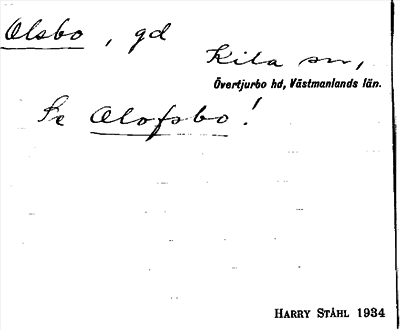 Olsbo, gd
Kila sn,
Övertjurbo hd, Västmanlands län.
Se Olofsbo!
HARRY STÅHL 1934